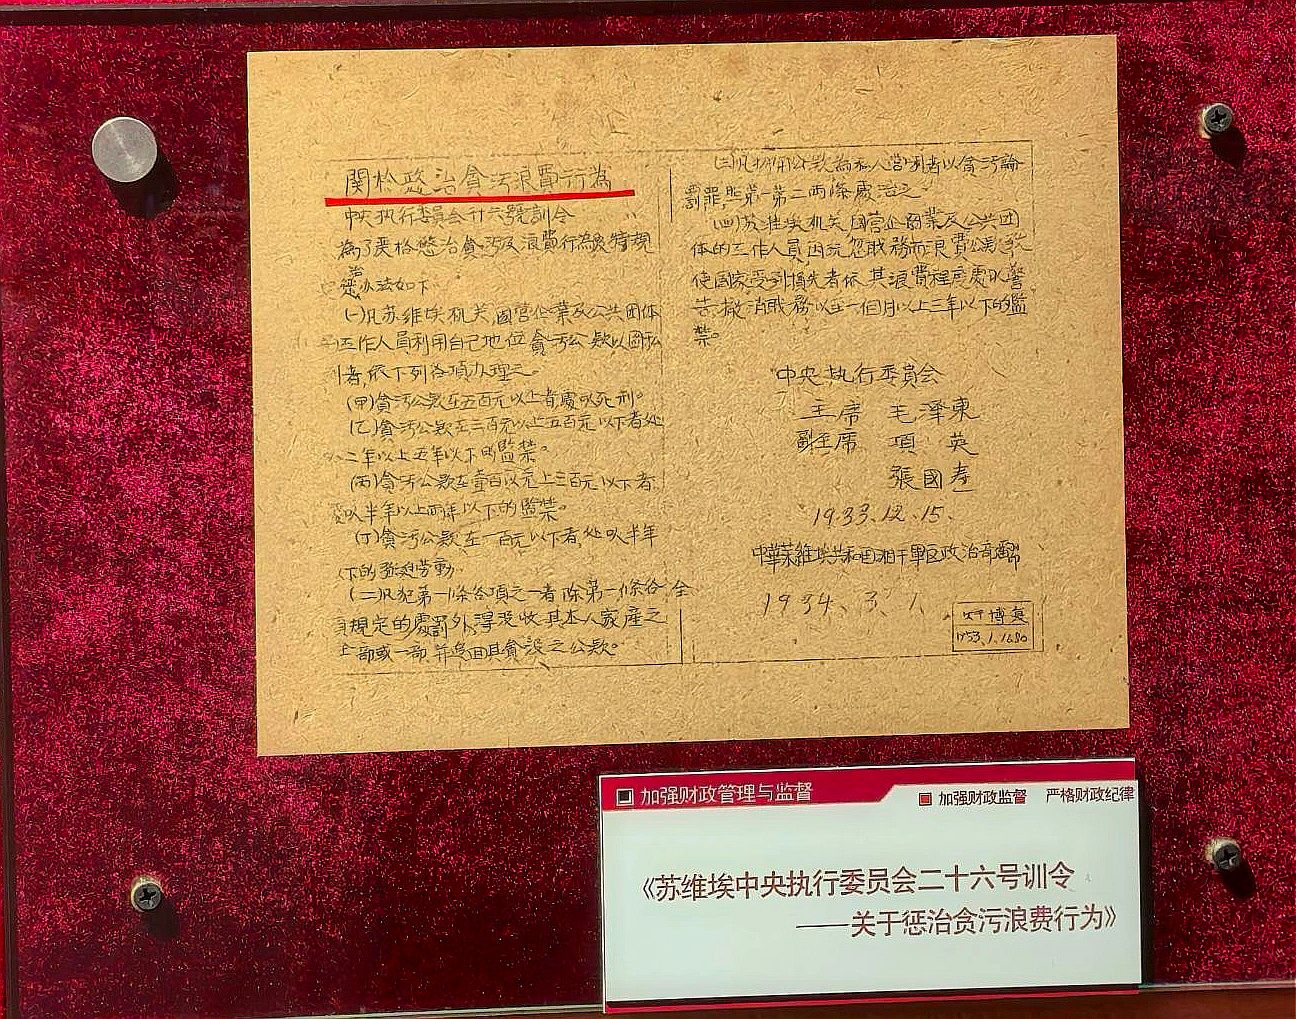 関於惩治貪污浪費行為
中央执行委員会廿六號訓令
為了严格懲治貪污及浪費行為特規
办法如下
(一)凡苏維埃机关,國营企業及公共团体
工作人員利用自己地位貪污公款以図私
者,依下列各項办理之。
(甲)貪污公款在五百元以上者,處以死刑。
(乙)貪污公款在三百元以上五百元以下者处
二年以上五年以下的監禁。
(丙)貪污公款在壹百以元上三百元以下者
以半年以上两年以下的監禁。
(丁)貪污公款在一百元以下者,处以半年
下的强迫劳動。
(二)凡犯第一條各項之一者除第一條各
規定的處罰外,得没收其本人家産之全
部或一部,并追回其貪没之公款。
(三)凡挪用公款為私人营利者以貪污論
罰罪,照第一第二两條處治之。
(四)苏维埃机关,国营企業及公共团
体的工作人員,因玩忽职務而浪費公款,致
使國家受到損失者依其浪費程度處以警
告,撤消职務以至一個月以上三年以下的監
禁。
中央执行委員会
主席 毛澤東
副主席 項 英
張國焘
1933.12.15.
中華苏維埃共和国湘干軍区政治部
1934.3.1.
加强财政管理与监督
加强财政监督 严格财政纪律
《苏维埃中央执行委员会二十六号训令
——关于惩治贪污浪费行为》